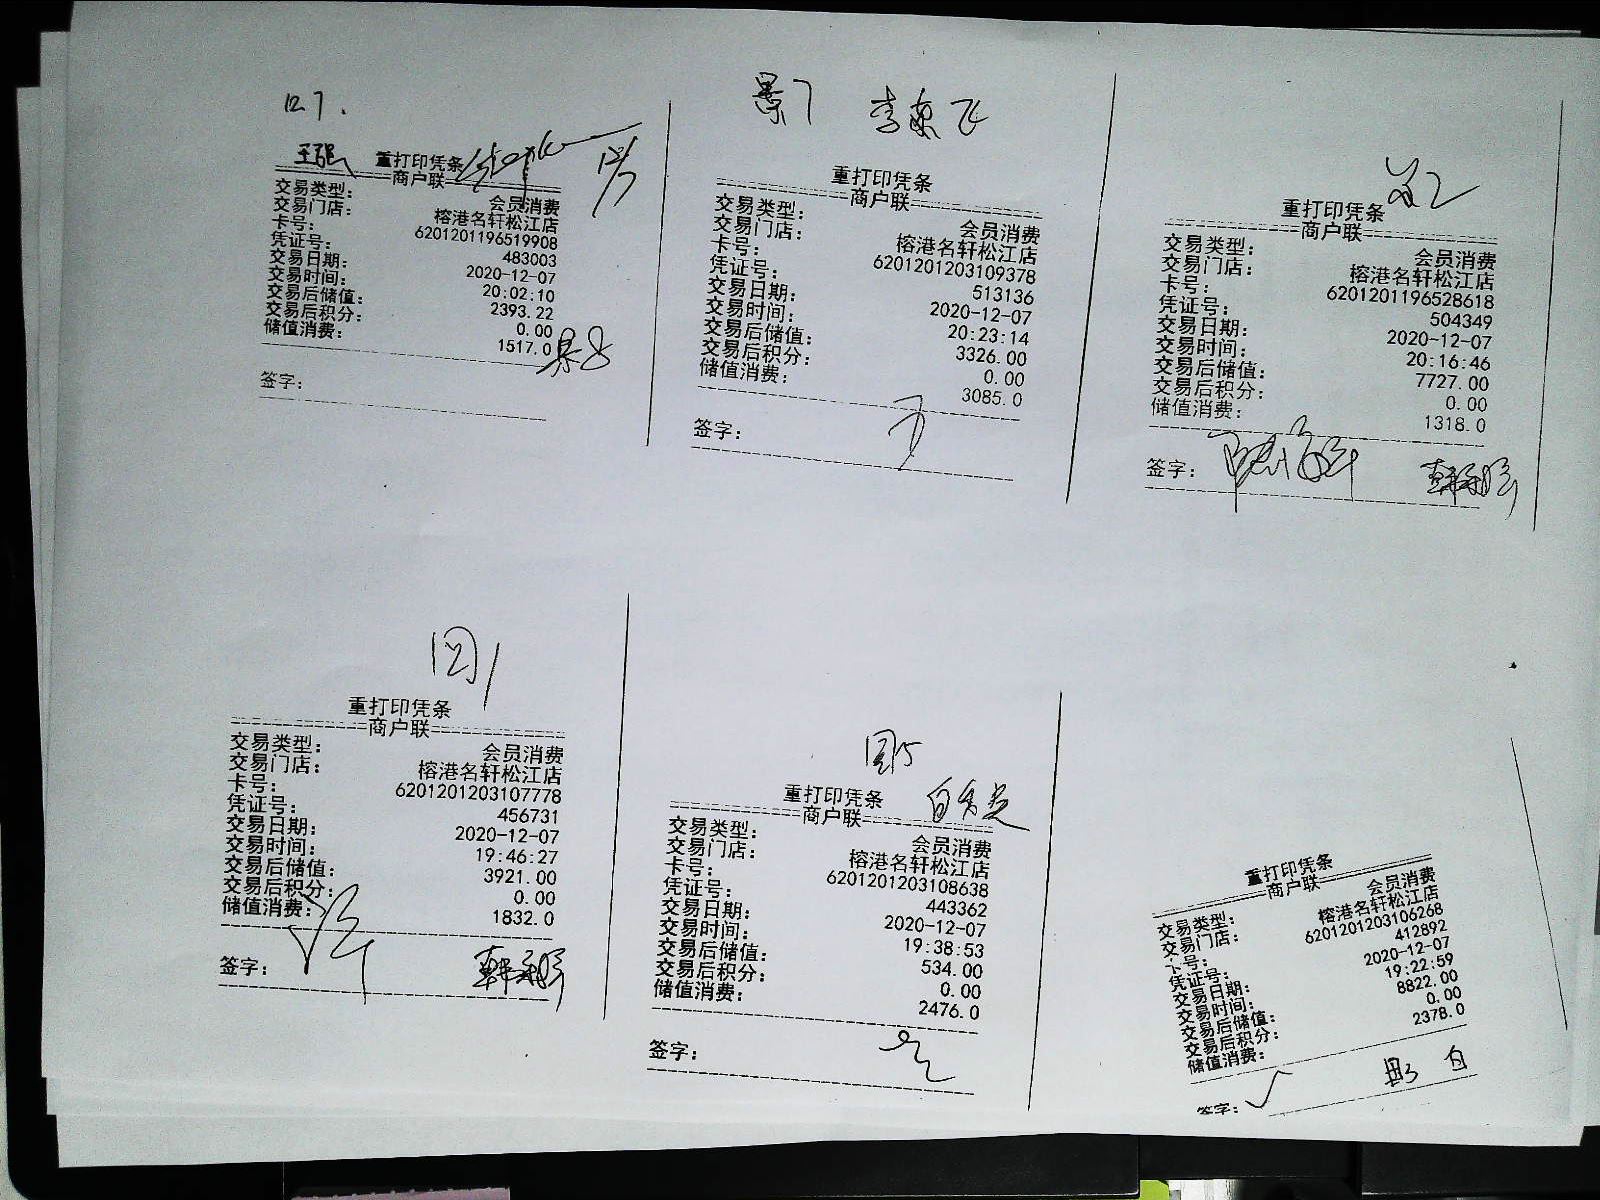 12.7.
王强
重打印凭条
商户联
交易类型： 会员消费
交易门店： 榕港名轩松江店
卡号： 6201201196519908
凭证号： 483003
交易日期： 2020-12-07
交易时间： 20:02:10
交易后储值： 2393.22
交易后积分： 0.00
储值消费： 1517.0
签字：
景7 李东飞
重打印凭条
商户联
交易类型： 会员消费
交易门店： 榕港名轩松江店
卡号： 6201201203109378
凭证号： 513136
交易日期： 2020-12-07
交易时间： 20:23:14
交易后储值： 3326.00
交易后积分： 0.00
储值消费： 3085.0
签字：
重打印凭条
商户联
交易类型： 会员消费
交易门店： 榕港名轩松江店
卡号： 6201201196528618
凭证号： 504349
交易日期： 2020-12-07
交易时间： 20:16:46
交易后储值： 7727.00
交易后积分： 0.00
储值消费： 1318.0
签字：
重打印凭条
商户联
交易类型： 会员消费
交易门店： 榕港名轩松江店
卡号： 6201201203107778
凭证号： 456731
交易日期： 2020-12-07
交易时间： 19:46:27
交易后储值： 3921.00
交易后积分： 0.00
储值消费： 1832.0
签字：
重打印凭条
商户联
交易类型： 会员消费
交易门店： 榕港名轩松江店
卡号： 6201201203108638
凭证号： 443362
交易日期： 2020-12-07
交易时间： 19:38:53
交易后储值： 534.00
交易后积分： 0.00
储值消费： 2476.0
签字：
重打印凭条
商户联
交易类型： 会员消费
交易门店： 榕港名轩松江店
卡号： 6201201203106268
凭证号： 412892
交易日期： 2020-12-07
交易时间： 19:22:59
交易后储值： 8822.00
交易后积分： 0.00
储值消费： 2378.0
签字：